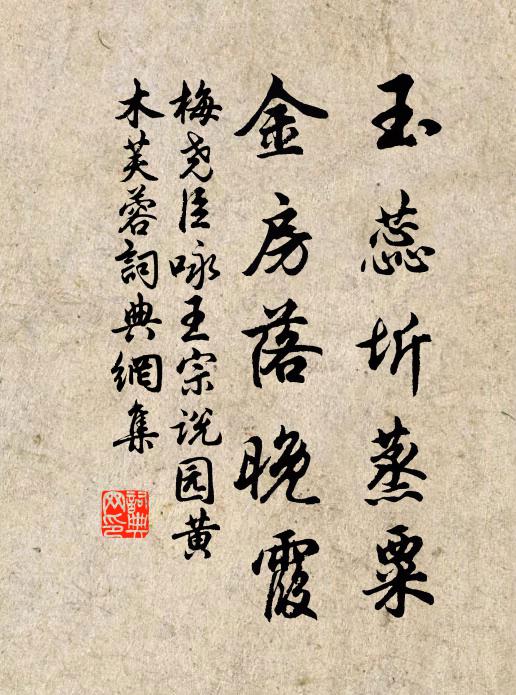 玉蕊坼蒸粟
金房落晚霞
梅尧臣咏王宗说园黄
木芙蓉詞典網集
詞典网印